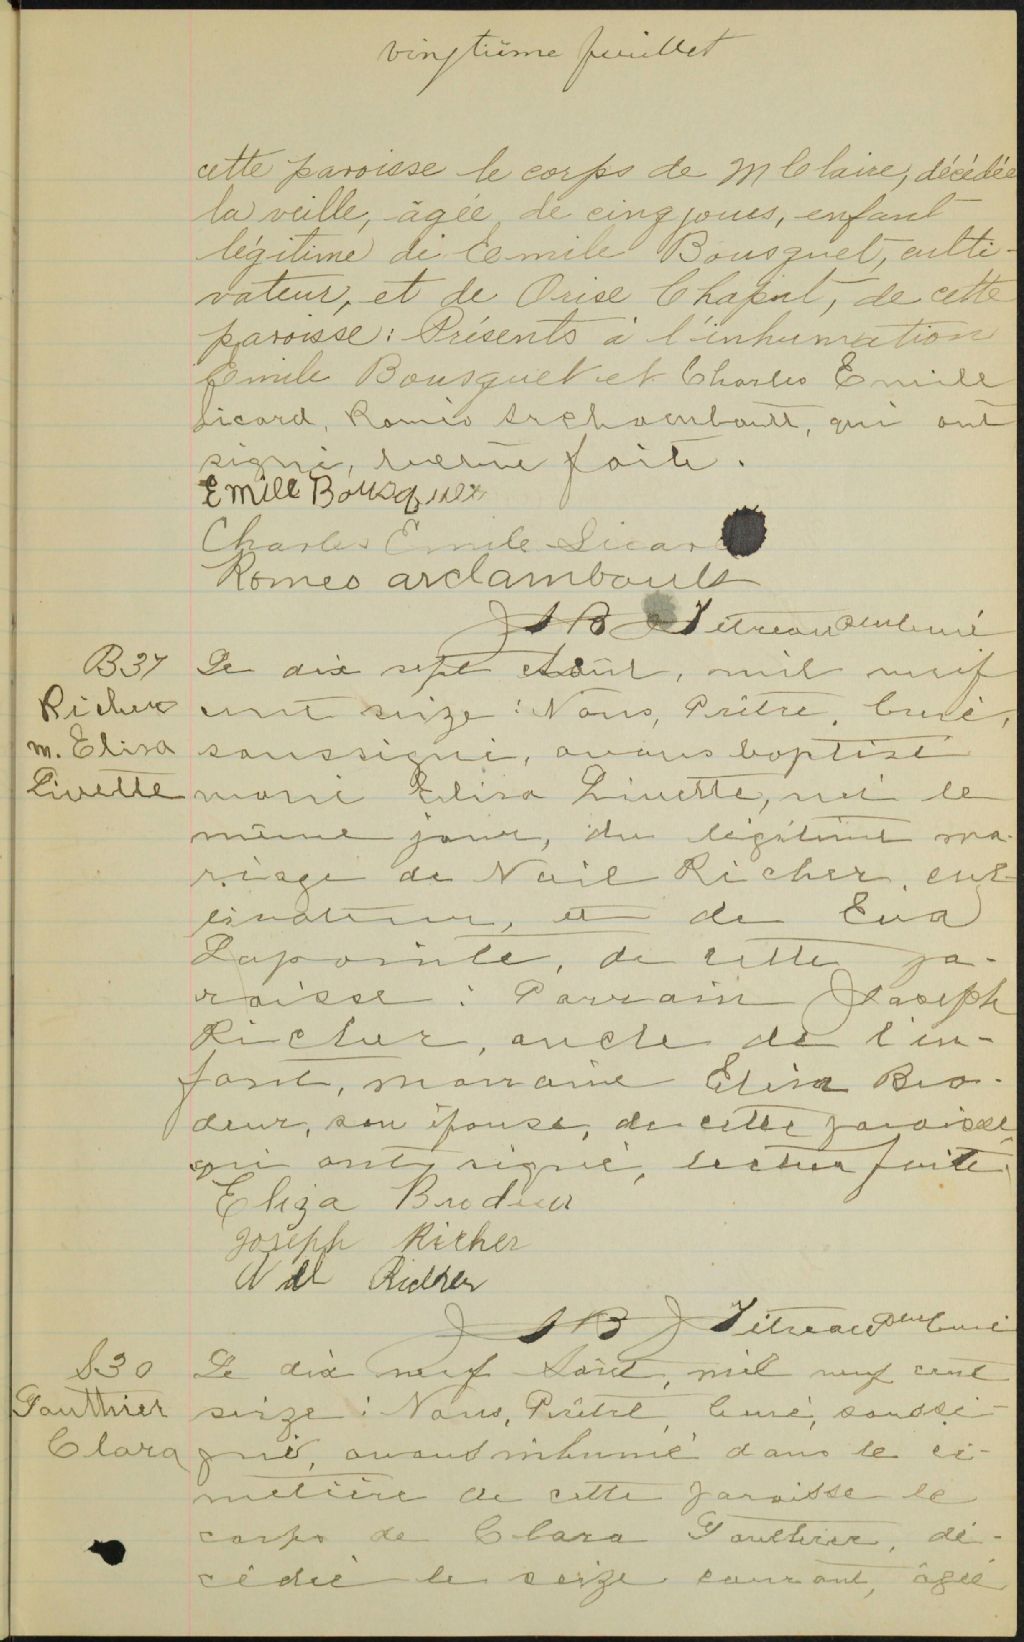 vingtième feuillet
cette paroisse le corps de M Claire, décédée
la veille, âgée de cinq jours, enfant
légitime de Emile Bousquet, culti-
vateur, et de Orise Chaput, de cette
paroisse: Présents à l'inhumation
Emile Bousquet et Charles Emile
Sicard, Roméo Archambault, qui ont
signé, lecture faite.
Emile Bousquet
Charles Emile Sicard
Romeo archambault
J B Tétreau Ptre Curé
B37
Richer
m. Elisa
Livette
Le dix sept Août, mil neuf
cent seize: Nous, Prêtre, Curé,
soussigné, avons baptisé
marie Elisa Livette, née le
même jour, du légitime ma-
riage de Noil Richer, cul-
tivateur, et de Eva
Lapointe, de cette pa-
roisse: Parrain Joseph
Richer, oncle de l'en-
fant, marraine Elisa Bro-
deur, son épouse, de cette paroisse
qui ont signé, lecture faite.
Eliza Brodeur
Joseph Richer
Richer
J B J Tétreau Ptre Curé
S30
Gauthier
Clara
Le dix neuf Août, mil neuf cent
seize: Nous, Prêtre, Curé, soussi-
gné, avons inhumé dans le ci-
metière de cette paroisse le
corps de Clara Gauthier, dé-
cédée le seize courant, âgée